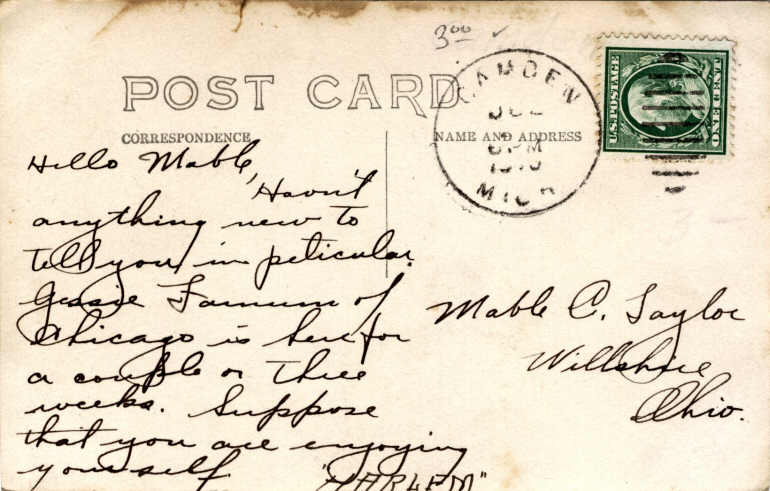 3⁰⁰ ✓
POST CARD
CORRESPONDENCE
NAME AND ADDRESS
CAMDEN
JUL
6PM
1910
MICH
U.S. POSTAGE
ONE CENT
Hello Mable,
Havn't
anything new to
tell you in peticular.
Jessie Farnum of
Chicago is here for
a couple or three
weeks. Suppose
that you are enjoying
yourself
"HARLEM"
Mable C. Taylor
Willshire
Ohio.